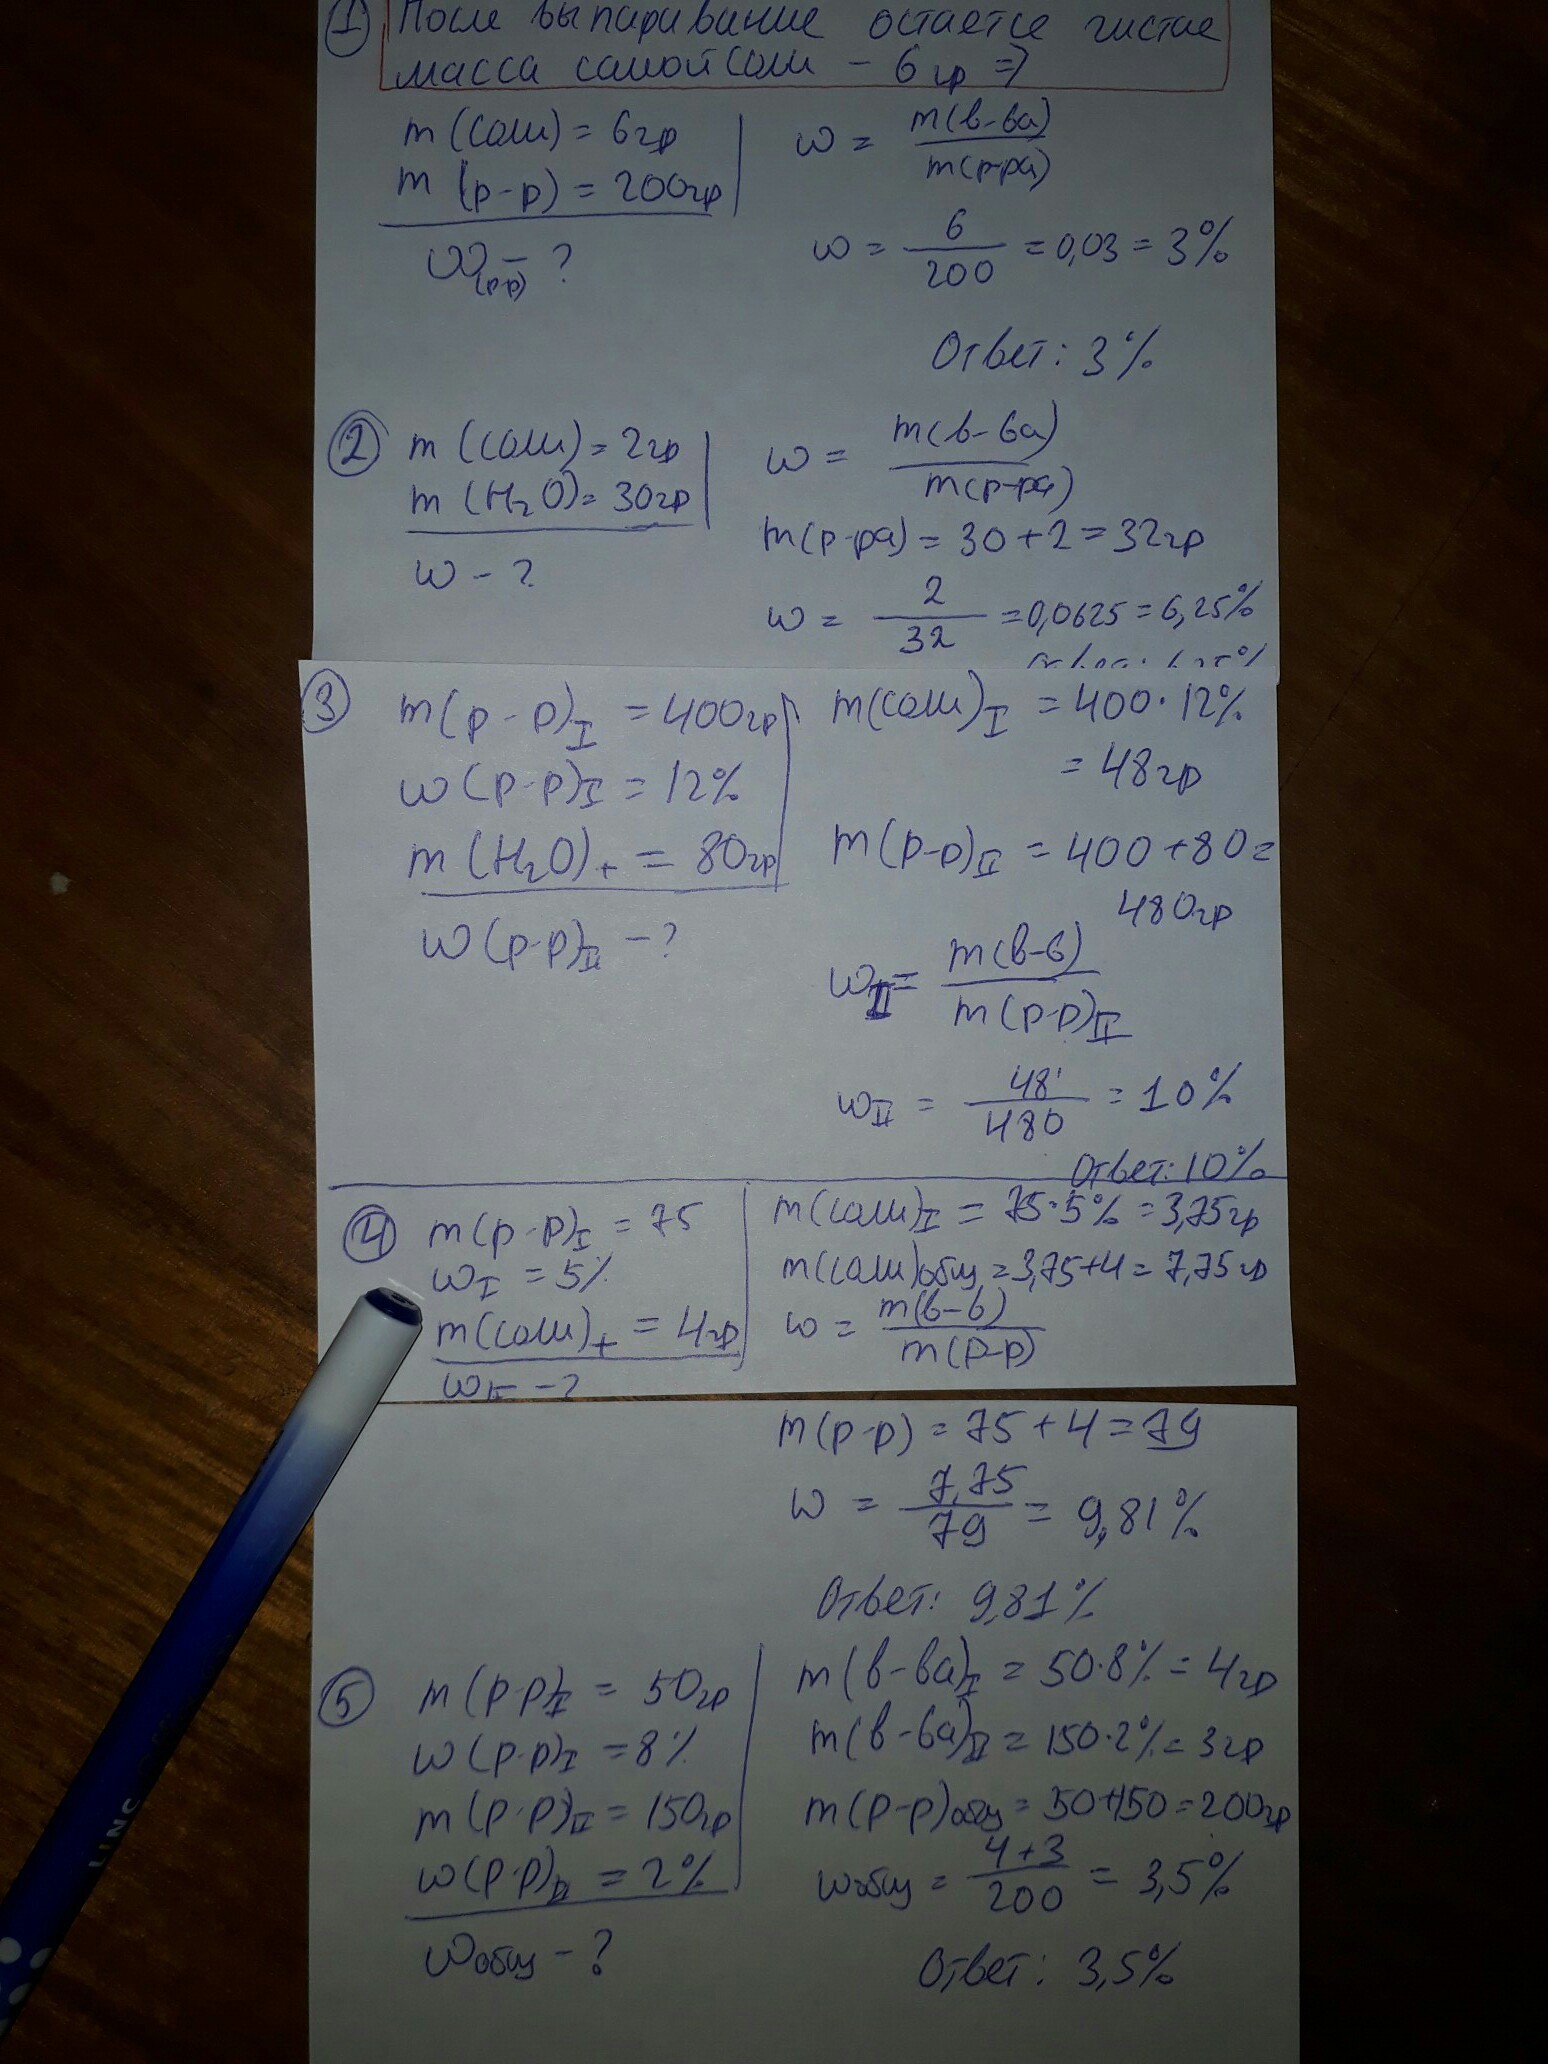 ① После выпаривание остаётсе чистае
масса самой соли - 6 гр =>
m (соли) = 6гр
m (р-р) = 200гр
ω(р-р) - ?
ω = m(в-ва) / m(р-ра)
ω = 6 / 200 = 0,03 = 3%
Ответ: 3%
② m (соли) = 2гр
m (H₂O) = 30гр
ω - ?
ω = m(в-ва) / m(р-ра)
m(р-ра) = 30 + 2 = 32гр
ω = 2 / 32 = 0,0625 = 6,25%
③ m(р-р)I = 400гр
ω(р-р)I = 12%
m(H₂O)+ = 80гр
ω(р-р)II - ?
m(соли)I = 400·12%
= 48гр
m(р-р)II = 400+80=
480гр
ωII = m(в-в) / m(р-р)II
ωII = 48 / 480 = 10%
Ответ: 10%
④ m(р-р)I = 75
ωI = 5%
m(соли)+ = 4гр
ωII - ?
m(соли)I = 75·5% = 3,75гр
m(соли)общ = 3,75+4 = 7,75гр
ω = m(в-в) / m(р-р)
m(р-р) = 75 + 4 = 79
ω = 7,75 / 79 = 9,81%
Ответ: 9,81%
⑤ m(р-р)I = 50гр
ω(р-р)I = 8%
m(р-р)II = 150гр
ω(р-р)II = 2%
ωобщ - ?
m(в-ва)I = 50·8% = 4гр
m(в-ва)II = 150·2% = 3гр
m(р-р)общ = 50+150 = 200гр
ωобщ = 4+3 / 200 = 3,5%
Ответ: 3,5%
LINC